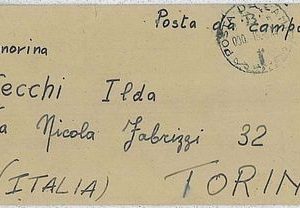 Posta da campo
norina
ecchi Ilda
a Nicola Fabrizzi 32
(ITALIA) TORIN